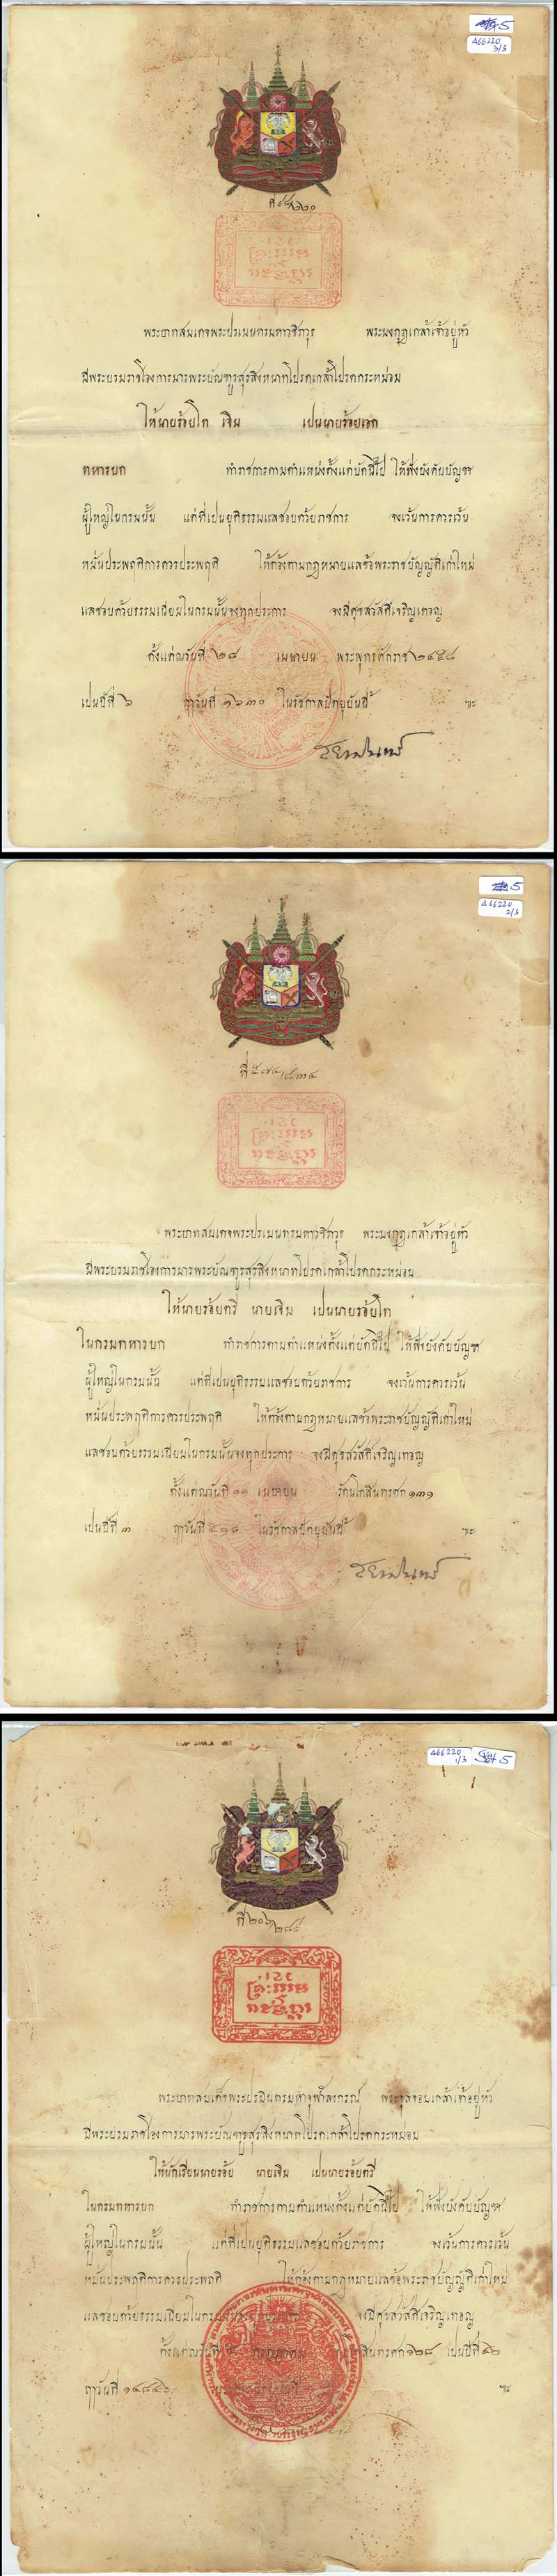 5
A66220
3/3
พระบาทสมเดจพระปรเมนทรมหาวชิราวุธ พระมงกุฎเกล้าเจ้าอยู่หัว
มีพระบรมราชโองการมารพระบัณฑูรสุรสิงหนาทโปรดเกล้าโปรดกระหม่อม
ให้นายร้อยโท เจิม เปนนายร้อยเอก
ทหารบก ทำราชการตามตำแหน่งตั้งแต่บัดนี้ไป ให้ฟังบังคับบัญชา
ผู้ใหญ่ในกรมนั้น แต่ที่เปนยุติธรรมแลชอบด้วยราชการ จงเว้นการควรเว้น
หมั่นประพฤติการควรประพฤติ ให้ต้องตามกฎหมายแลข้อพระราชบัญญัติเก่าใหม่
แลชอบด้วยธรรมเนียมในกรมนั้นจงทุกประการ จงมีศุขสวัสดิ์เจริญเทอญ
ตั้งแต่ณวันที่ ๒๘ เมษายน พระพุทธศักราช ๒๔๕๘
เปนปีที่ ๖ ฤๅวันที่ ๑๖๓๐ ในรัชกาลปัตยุบันนี้ ฯะ
5
A66220
2/3
ที่ ๕๗๔/๘๓๔
พระบาทสมเดจพระปรเมนทรมหาวชิราวุธ พระมงกุฎเกล้าเจ้าอยู่หัว
มีพระบรมราชโองการมารพระบัณฑูรสุรสิงหนาทโปรดเกล้าโปรดกระหม่อม
ให้นายร้อยตรี นายเจิม เปนนายร้อยโท
ในกรมทหารบก ทำราชการตามตำแหน่งตั้งแต่บัดนี้ไป ให้ฟังบังคับบัญชา
ผู้ใหญ่ในกรมนั้น แต่ที่เปนยุติธรรมแลชอบด้วยราชการ จงเว้นการควรเว้น
หมั่นประพฤติการควรประพฤติ ให้ต้องตามกฎหมายแลข้อพระราชบัญญัติเก่าใหม่
แลชอบด้วยธรรมเนียมในกรมนั้นจงทุกประการ จงมีศุขสวัสดิ์เจริญเทอญ
ตั้งแต่ณวันที่ ๑๑ เมษายน รัตนโกสินทรศก ๑๓๑
เปนปีที่ ๓ ฤๅวันที่ ๕๑๘ ในรัชกาลปัตยุบันนี้ ฯะ
A66220
1/3
Set 5
ที่ ๒๐๖/๒๘๕
พระบาทสมเด็จพระปรมินทรมหาจุฬาลงกรณ์ พระจุลจอมเกล้าเจ้าอยู่หัว
มีพระบรมราชโองการมารพระบัณฑูรสุรสิงหนาทโปรดเกล้าโปรดกระหม่อม
ให้นักเรียนนายร้อย นายเจิม เปนนายร้อยตรี
ในกรมทหารบก ทำราชการตามตำแหน่งตั้งแต่บัดนี้ไป ให้ฟังบังคับบัญชา
ผู้ใหญ่ในกรมนั้น แต่ที่เปนยุติธรรมแลชอบด้วยราชการ จงเว้นการควรเว้น
หมั่นประพฤติการควรประพฤติ ให้ต้องตามกฎหมายแลข้อพระราชบัญญัติเก่าใหม่
แลชอบด้วยธรรมเนียมในกรมนั้นจงทุกประการ จงมีศุขสวัสดิ์เจริญเทอญ
ตั้งแต่ณวันที่ รัตนโกสินทรศก ๑๒๘ เปนปีที่ ๔๒
ฤๅวันที่ ฯะ